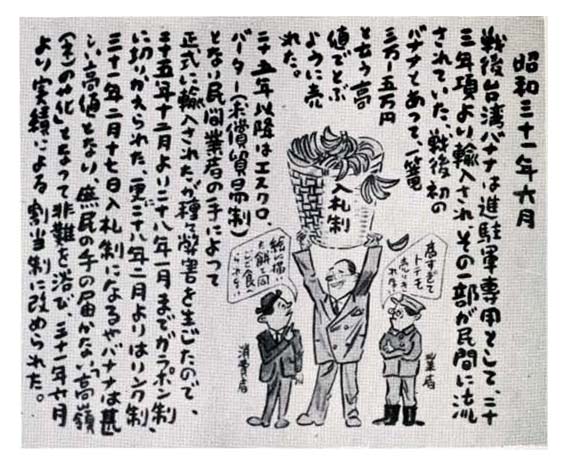 昭和三十一年六月
戦後台湾バナナは進駐軍専用として、二十
三年頃より輸入され、その一部が民間に流
されていた、戦後初の
バナナとあって一篭
三万―五万円
となう高
値でとぶ
ように売
れた。
二十五年以降はエスクロ、
バーター(求償貿易制)
となり民間業者の手によって
正式に輸入されたが種々弊害を生じたので、
二十五年十二月より二十八年一月までがラポン制、
に切りかえられた、更に二十八年二月よりはリンク制
三十一年二月十七日入札制になるやバナナは甚
しい高値となり、庶民の手の届かない「高嶺
(ネ)の花」となって非難を浴び、三十一年六月
より実績による割当制に改められた。
入札制
高すぎて
トテモ
売りきれ
業者
絵に描い
た餅と同
じで食べ
られない
消費者